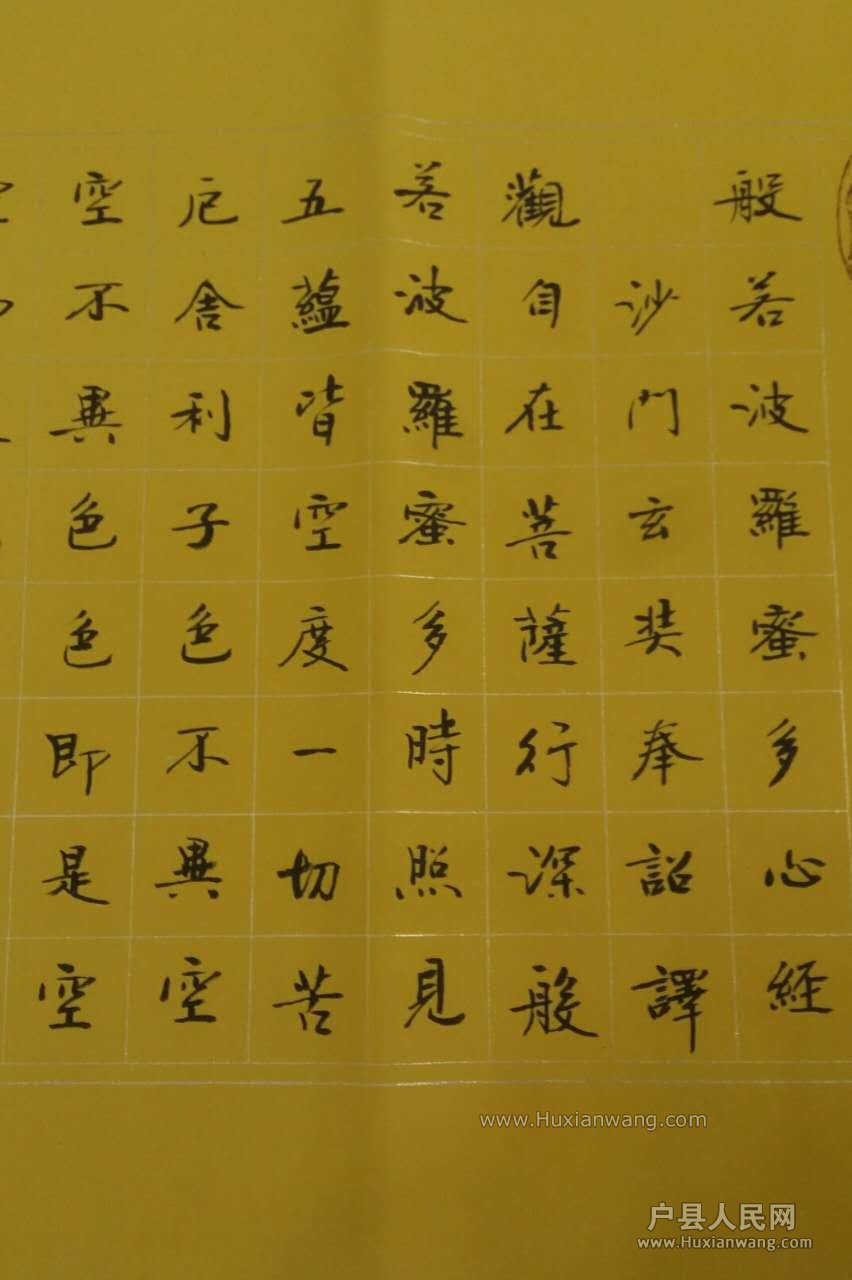 般若波羅蜜多心經
沙門玄奘奉詔譯
觀自在菩薩行深般
若波羅蜜多時照見
五蘊皆空度一切苦
厄舍利子色不異空
空不異色色即是空
www.Huxianwang.com
户县人民网
www.Huxianwang.com